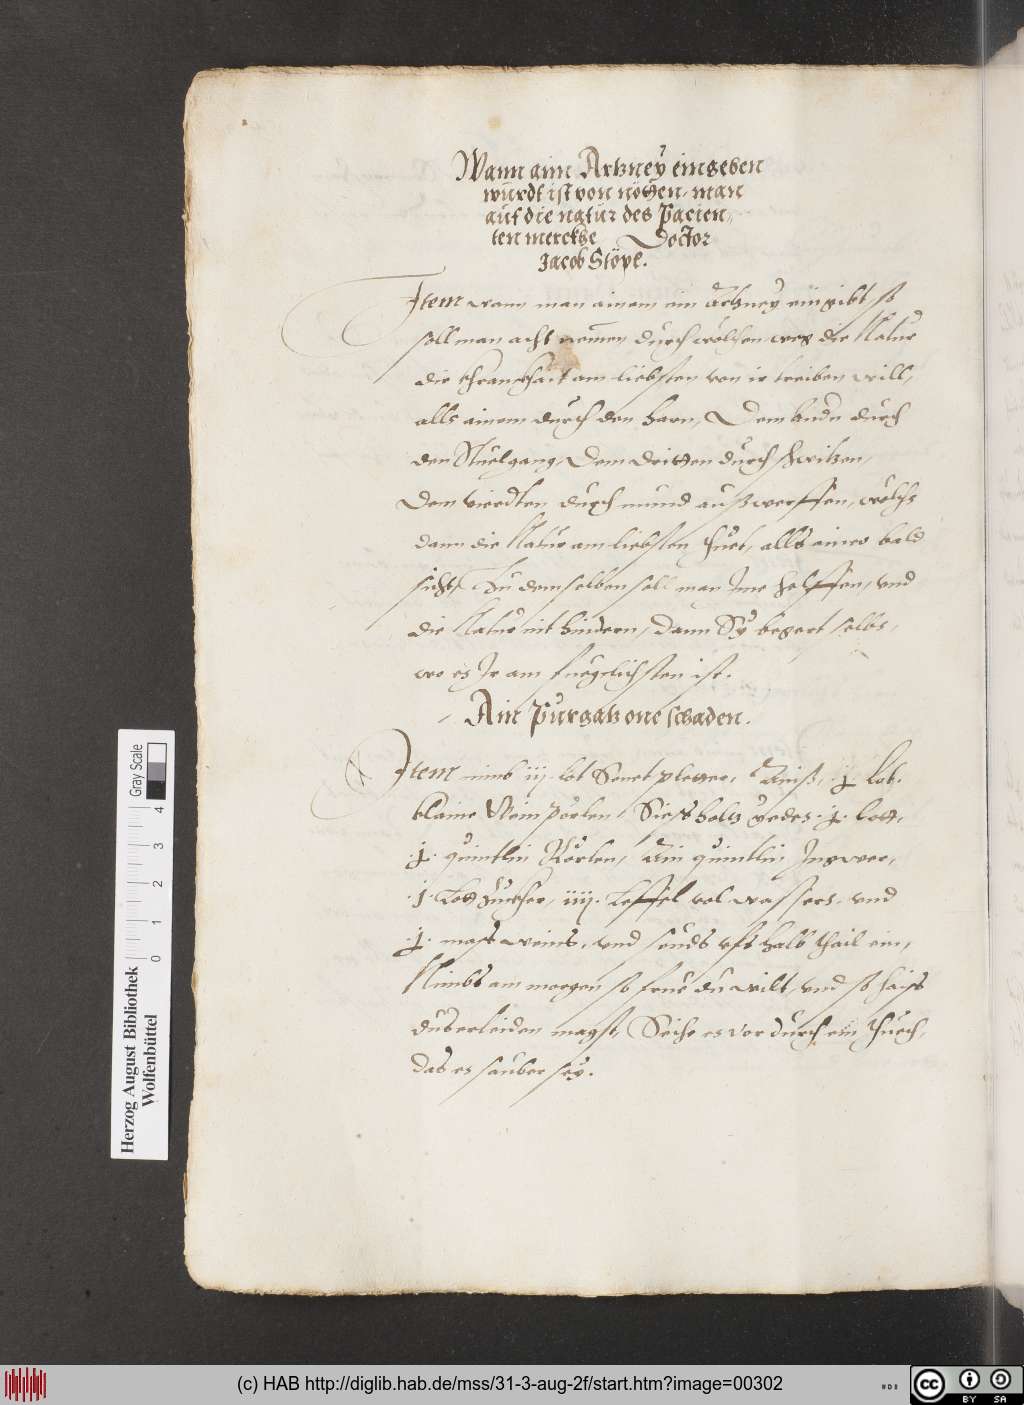 Wann ain Artzney eingeben
würdt ist von nöthen, man
auf die natur des Pacien,
ten merckhe Doctor
Jacob Stöpl.
Item wann man ainem ein Artzney eingibt, so
soll man acht nemen durch wölchen weg die Natur
die Khranckhait am liebsten von ir treiben will,
alls ainem durch den harn, Dem Andn durch
den Stuelgang, Dem dritten durch schwitzen,
Dem vierdten durch mund außwerffen, wölchs
dann die Natur am liebsten thuet, alls ainer bald
sicht, Zu demselben soll man Jme helffen, und
die Natur nit hindern, dann Sy begert selbs,
wo es Jr am fueglichsten ist.
Ain Purgatz one schaden.
Item nimb iij. lot Senet pletter, Aniß, .j. Lot.
klaine Weinpörlen, Siessholtz yedes .j. lott,
.j. quintlin Rörlen, Ain quintlin Ingwer,
.j. Lott Zuckher, iiij. Leffel vol wassers und
.j. mass weins, und seuds ufs halb thail ein,
Nimbs am morgen so frue du wilt, und so haiss
dus erleiden magst, Seihe es vor durch ein thuech,
das es sauber sey.
Herzog August Bibliothek
Wolfenbüttel
Gray Scale
0 1 2 3 4
(c) HAB http://diglib.hab.de/mss/31-3-aug-2f/start.htm?image=00302
cc BY SA